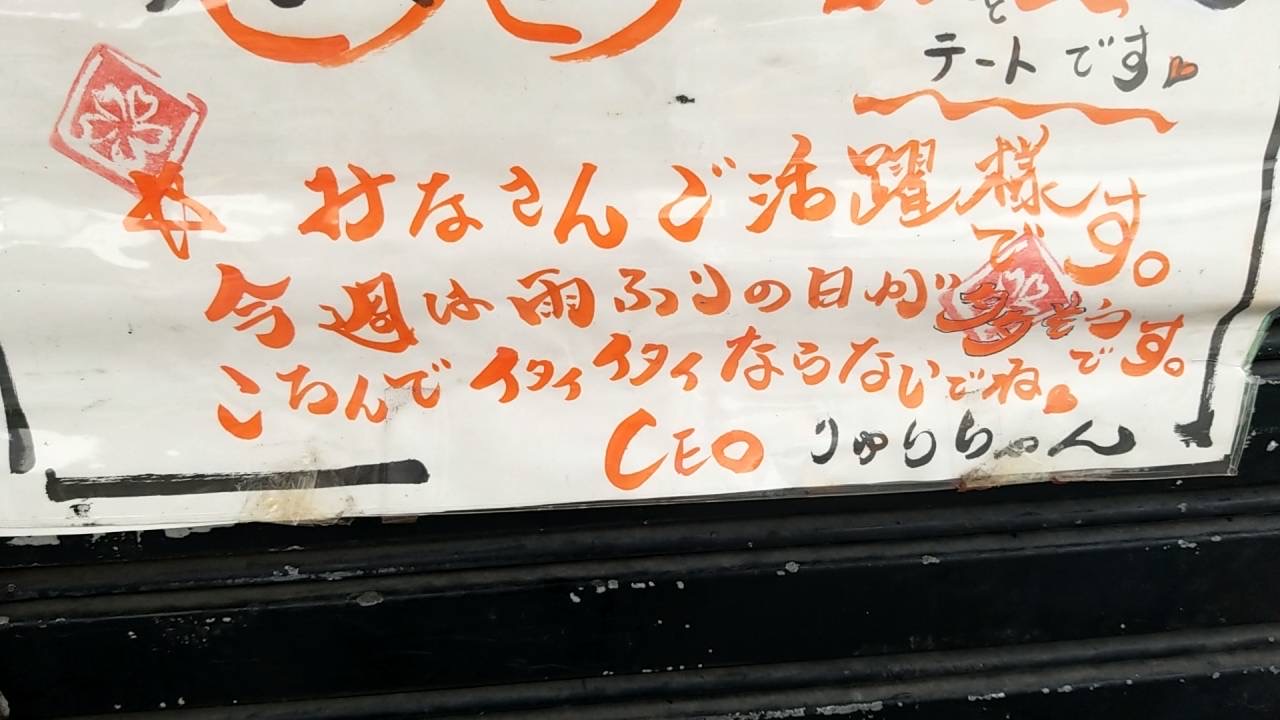 と
テートです
みなさんご活躍様です。
今週は雨ふりの日が多そうです。
ころんでイタイイタイならないでね
CEO りゅうちゃん